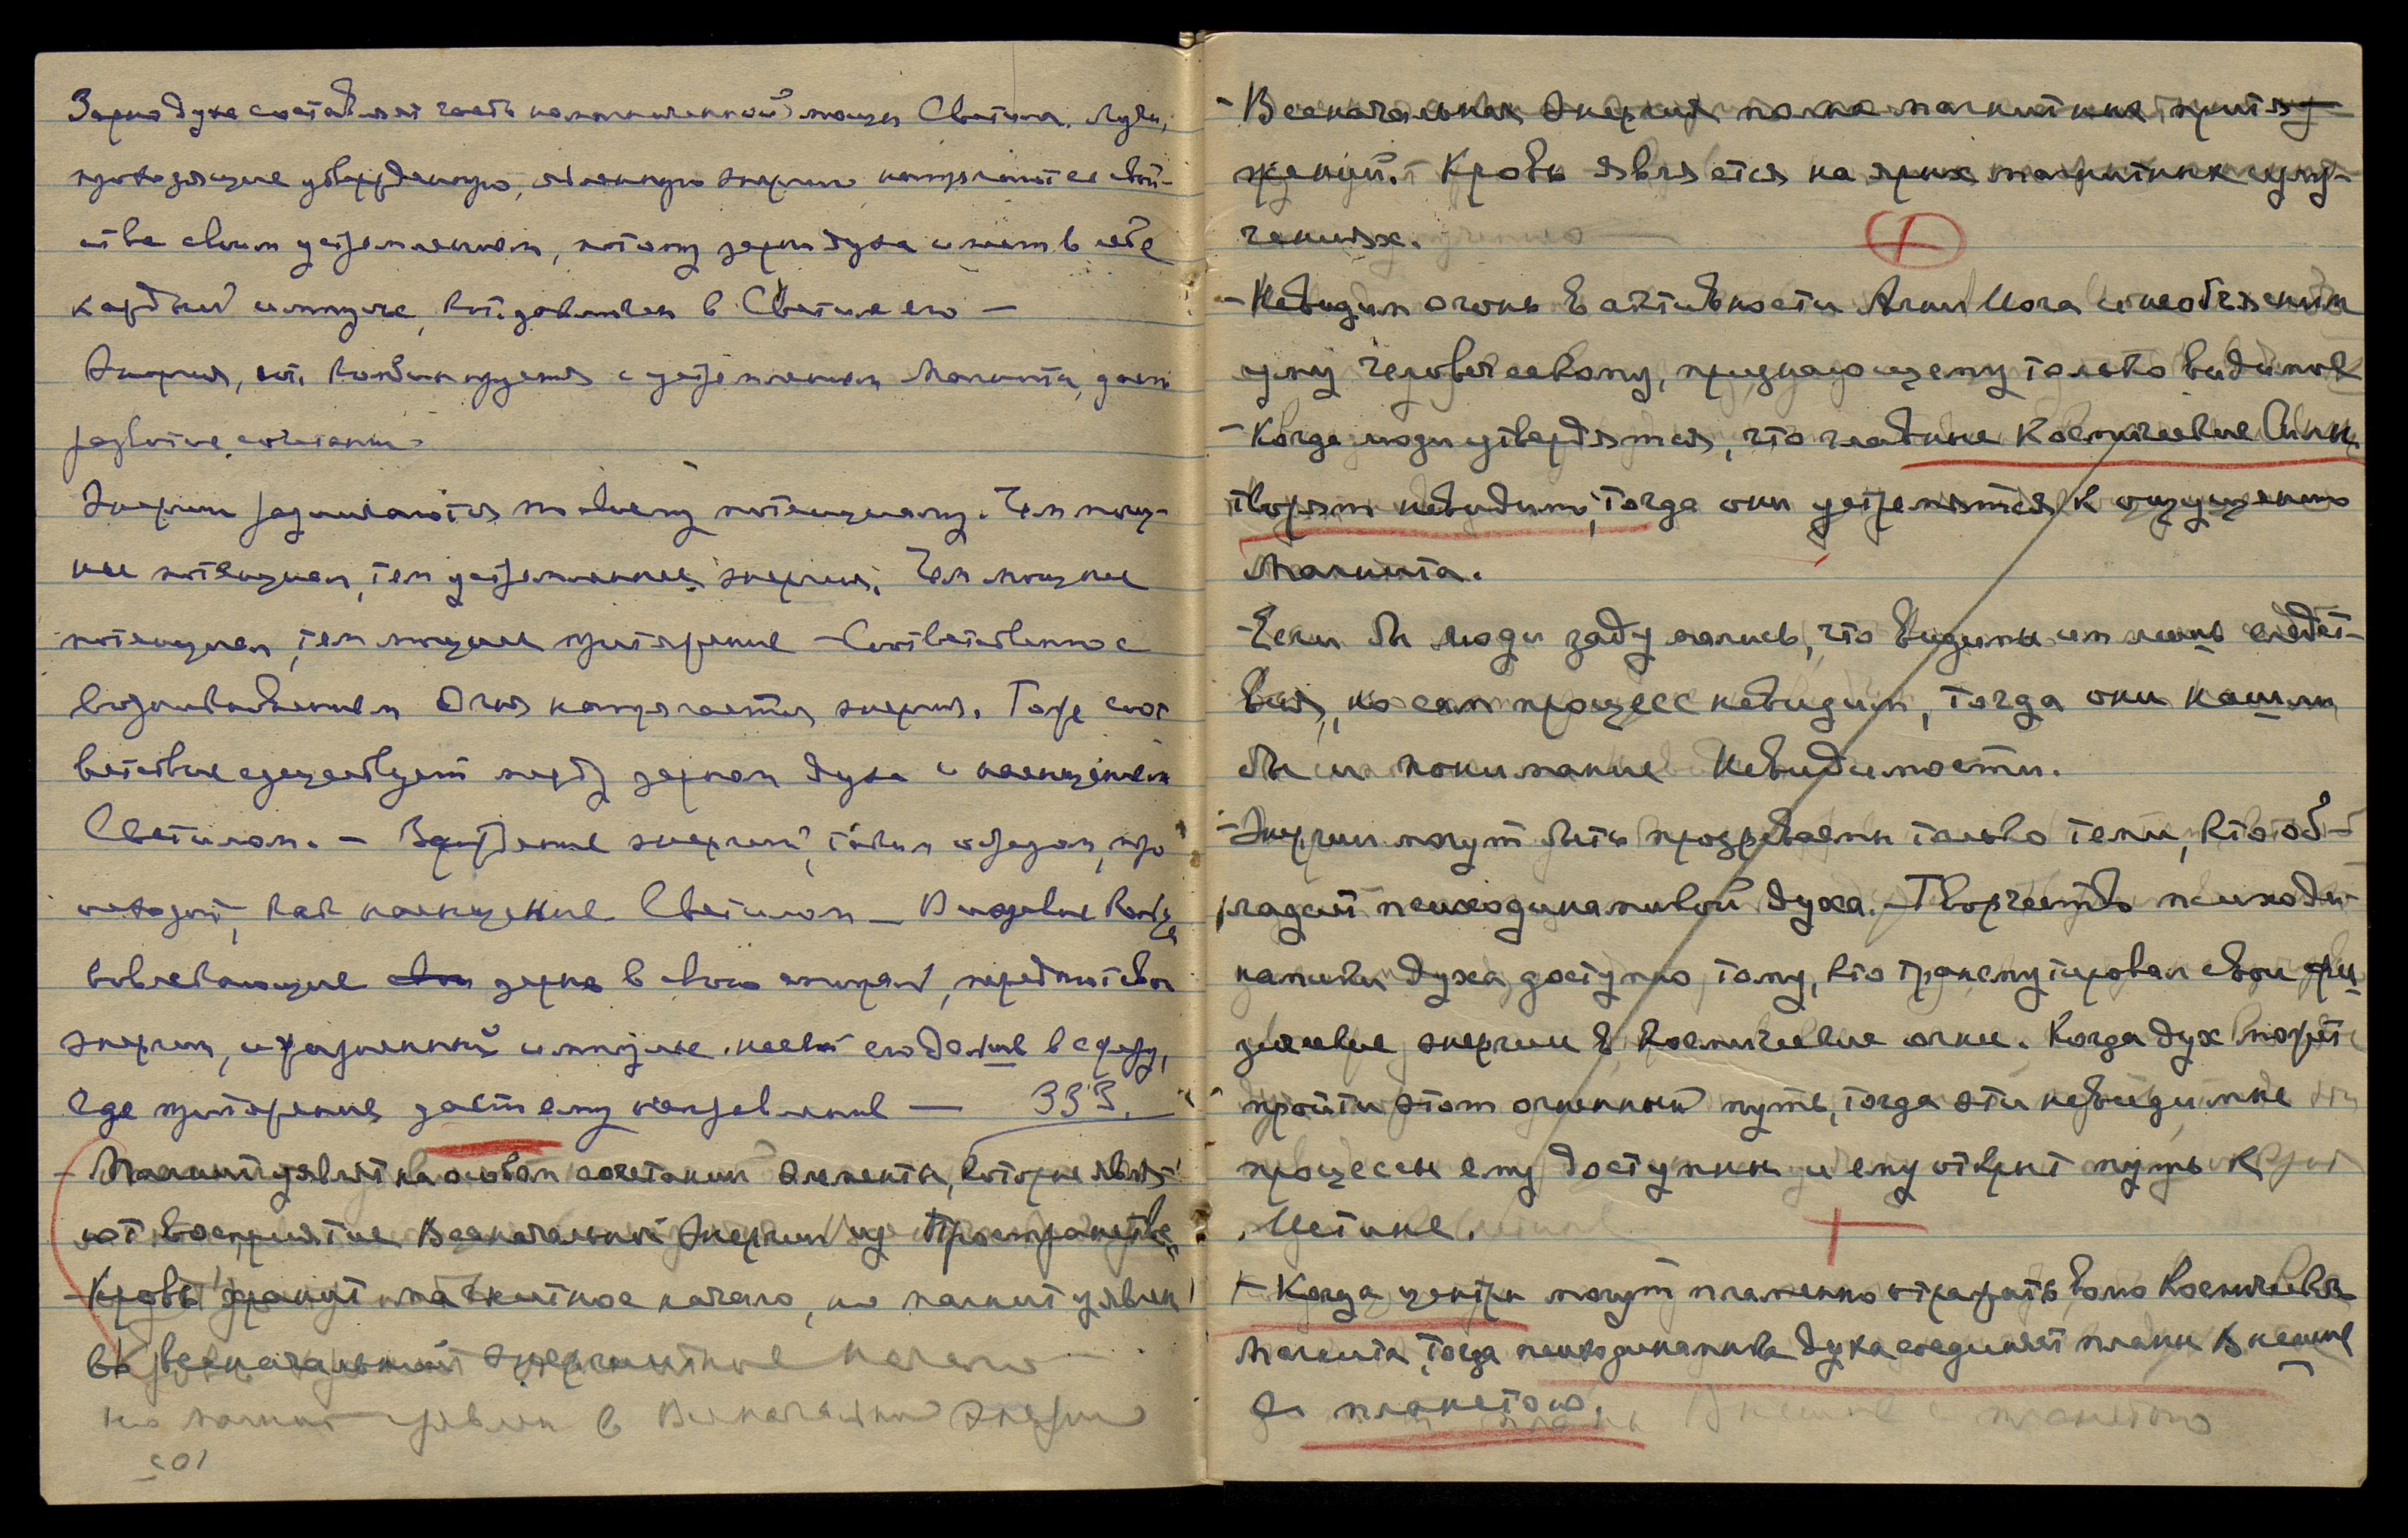 Зерно духа составляет часть намагниченной мощи Светила. Лучи,
проводящие утвержденную, явленную энергию напрягают ее свой-
ства своим устремлением, потому зерно духа имеет в себе
каждый импульс, кот. заключен в Светиле его —
Энергия, кот. комбинируется с устремлением Магнита, дает
развитие сочетанию
Энергии различаются по своему потенциалу. Чем мощ-
нее потенциал, тем устремленнее энергия. Чем мощнее
потенциал, тем мощнее притяжение — Соответственно с
Огня напрягается энергия. Тоже соот
ветствие существует между зерном духа и насыщением
Светилом. — Зарождение энергий, таким образом, про
исходит, как насыщение Светилом — Космические
вовлекающие зерно в свою спираль, передают свои
энергии, и импульс несет его дальше в сферу,
где притяжение даст ему направление — 335.
- Магнит являет на особом сочетании элементы, которые явля-
ют восприятие Всеначальной Энергии из Пространства
- Кровь хранит магнитное начало, но магнит уявлен
во всеначальной энергии начало
но магнит уявлен в Всеначальной Энергии
- Всеначальная Энергия полна магнитных притя-
жений. Кровь является на ярых магнитных излу-
чениях.
- Невидим огонь в активности Агни Йога и необъясним
уму человеческому, признающему только видимое
- Когда люди утвердятся, что главные Космические Силы
творят невидимо, тогда они устремятся к ощущению
Магнита.
- Если бы люди задумались, что видимы им лишь следст-
вия, но сам процесс невидим, тогда они нашли
бы и понимание Невидимости.
- Энергии могут быть прозреваемы только теми, кто об-
ладает психодинамикой духа. - Творчество психоди-
намики духа доступно тому, кто трансмутировал свои фи
зические энергии в Космические огни. Когда дух может
пройти этот огненный путь, тогда эти невидимые
процессы ему доступны и ему открыт путь к
Истине.
+ Когда центры могут пламенно отражать волю Космическ.
Магнита, тогда психодинамика духа соединяет планы Высшие
с планетою.